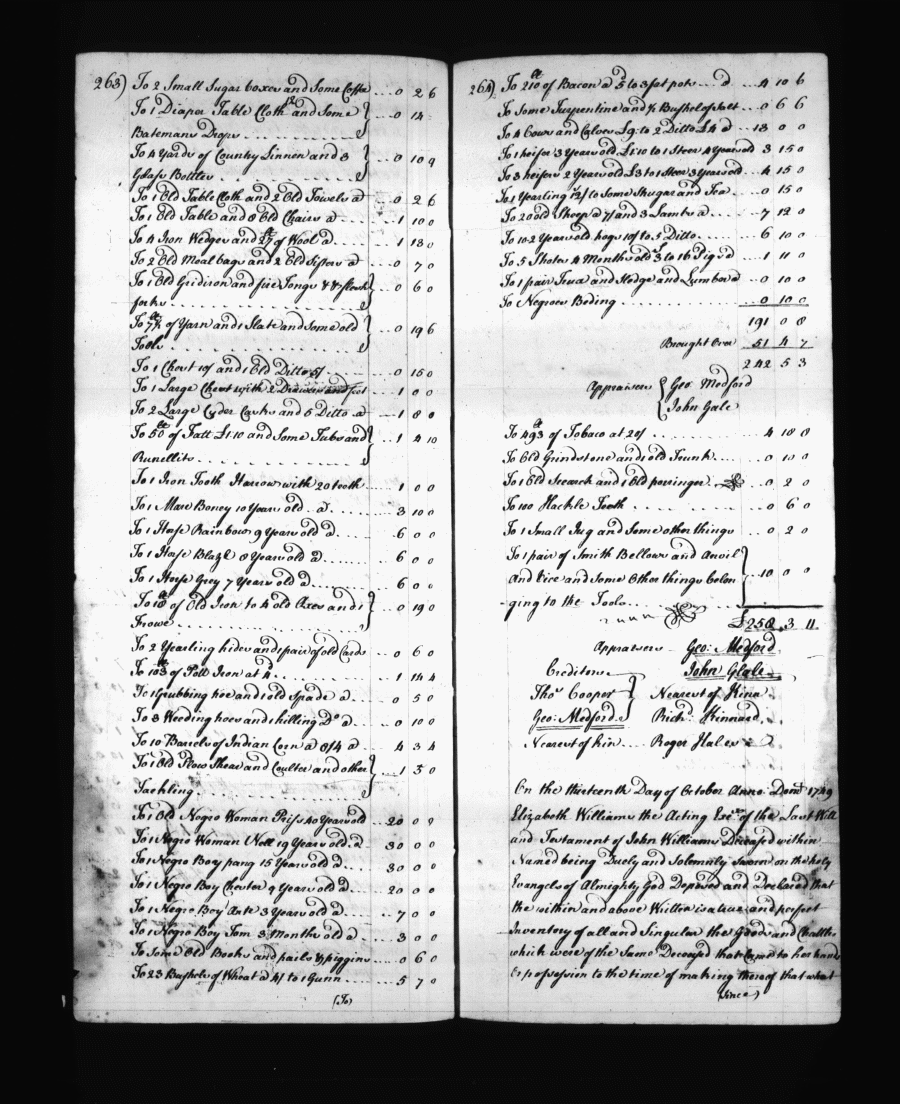 263) To 2 Small Sugar boxes and Some Coffe ... 0 2 6
To 1 Diaper Table Cloth and Some
Batemans Drops ... 0 14
To 4 Yards of Country Linnen and 3
Glass Bottles ... 0 10 9
To 1 Old Table Cloth and 2 Old Towels a ... 0 2 6
To 1 Old Table and 8 Old Chairs a ... 1 10 0
To 4 Iron Wedges and 27 lb of Wool a ... 1 13 0
To 2 Old Meal bags and 2 Old Sifters a ... 0 7 0
To 1 Old Gridiron and fire Tongs & flesh
forks ... 0 6 0
To 7½ lb of Yarn and 1 Slate and Some old
Tools ... 0 19 6
To 1 Chest 10/ and 1 Old Ditto 5/ ... 0 15 0
To 1 Large Chest with 2 Drawers and feet ... 1 0 0
To 2 Large Cyder Casks and 5 Ditto a ... 1 8 0
To 50 lb of Fatt £1:10 and Some Tubs and
Runellits ... 1 4 10
To 1 Iron Tooth Harrow with 20 teeth ... 1 0 0
To 1 Mare Boney 10 Years old a ... 3 10 0
To 1 Horse Rainbow 9 Years old a ... 6 0 0
To 1 Horse Blaze 8 Years old a ... 6 0 0
To 1 Horse Grey 7 Years old a ... 6 0 0
To 18 lb of Old Iron to 4 old Axes and 1
Frowe ... 0 19 0
To 2 Yearling hides and 1 pair of old Cards ... 0 6 0
To 103 lb of Pott Iron at 4 ... 1 14 4
To 1 Grubbing hoe and 1 old Spade a ... 0 5 0
To 8 Weeding hoes and 1 hilling Do a ... 0 10 0
To 10 Barrels of Indian Corn a 8/4 a ... 4 3 4
To 1 Old Plow Shear and Coulter and other
Tackling ... 1 5 0
To 1 Old Negro Woman Priss 40 Years old ... 20 0 0
To 1 Negro Woman Nell 19 Years old a ... 30 0 0
To 1 Negro Boy pang 15 Years old a ... 30 0 0
To 1 Negro Boy Chester 9 Years old a ... 20 0 0
To 1 Negro Boy 3 Years old a ... 7 0 0
To 1 Negro Boy Tom 3 Months old a ... 3 0 0
To Some Old Books and pails & piggins ... 0 6 0
To 23 Bushels of Wheat a 4/ to 1 Gunn ... 5 7 0
(To)
264) To 210 lb of Bacon a 5 to 3 fat pots a ... 4 10 6
To Some Turpentine and ½ Bushel of Salt ... 0 6 6
To 4 Cows and Calves £9: to 2 Ditto £4 a ... 13 0 0
To 1 heifer 3 Years old £1:10 to 1 Steer 4 Years old 3 15 0
To 3 heifers 2 Years old £3 to 1 Steer 3 Years old ... 4 15 0
To 1 Yearling 12/ to Some Shugar and Tea ... 0 15 0
To 20 old Sheep a 7/ and 3 Lambs a ... 7 12 0
To 10 2 Years old hogs 10/ to 5 Ditto ... 6 10 0
To 5 Shotes 4 Months old 3 to 16 Pigs a ... 1 11 0
To 1 pair and Sledge and Lumber a ... 0 10 0
To Negroes Beding ... 0 10 0
191 0 8
Brought Over 51 4 7
242 5 3
Appraisers { Geo Medford
John Gale
To 493 lb of Tobaco at 20/ ... 4 18 8
To Old Grindstone and 1 old Trunk ... 0 10 0
To 1 Old Search and 1 Old porringer ... 0 2 0
To 100 Hackle Teeth ... 0 6 0
To 1 Small Jug and Some other things 0 2 0
To 1 pair of Smith Bellows and Anvil
And Vice and Some Other things belon
-ging to the Tools ... 10 0 0
£258 . 3 11
Appraisers Geo: Medford
Creditors John Glale
Thos Cooper } Nearest of Kina
Geo: Medford } Richd Kinnard
Nearest of kin ... Roger Hales
On the thirteenth Day of October Anno Domi 1749
Elizabeth Williams the Acting Exex of the Last Will
and Testament of John Williams Deceased within
Named being Duely and Solemnly Sworn on the holy
Evangels of Almighty God Deposed and Declared that
the within and above Written is a true and perfect
Inventory of all and Singular the Goods and Chattles
which were of the Same Deceased that came to her hands
or possession to the time of making thereof that what
(Since)